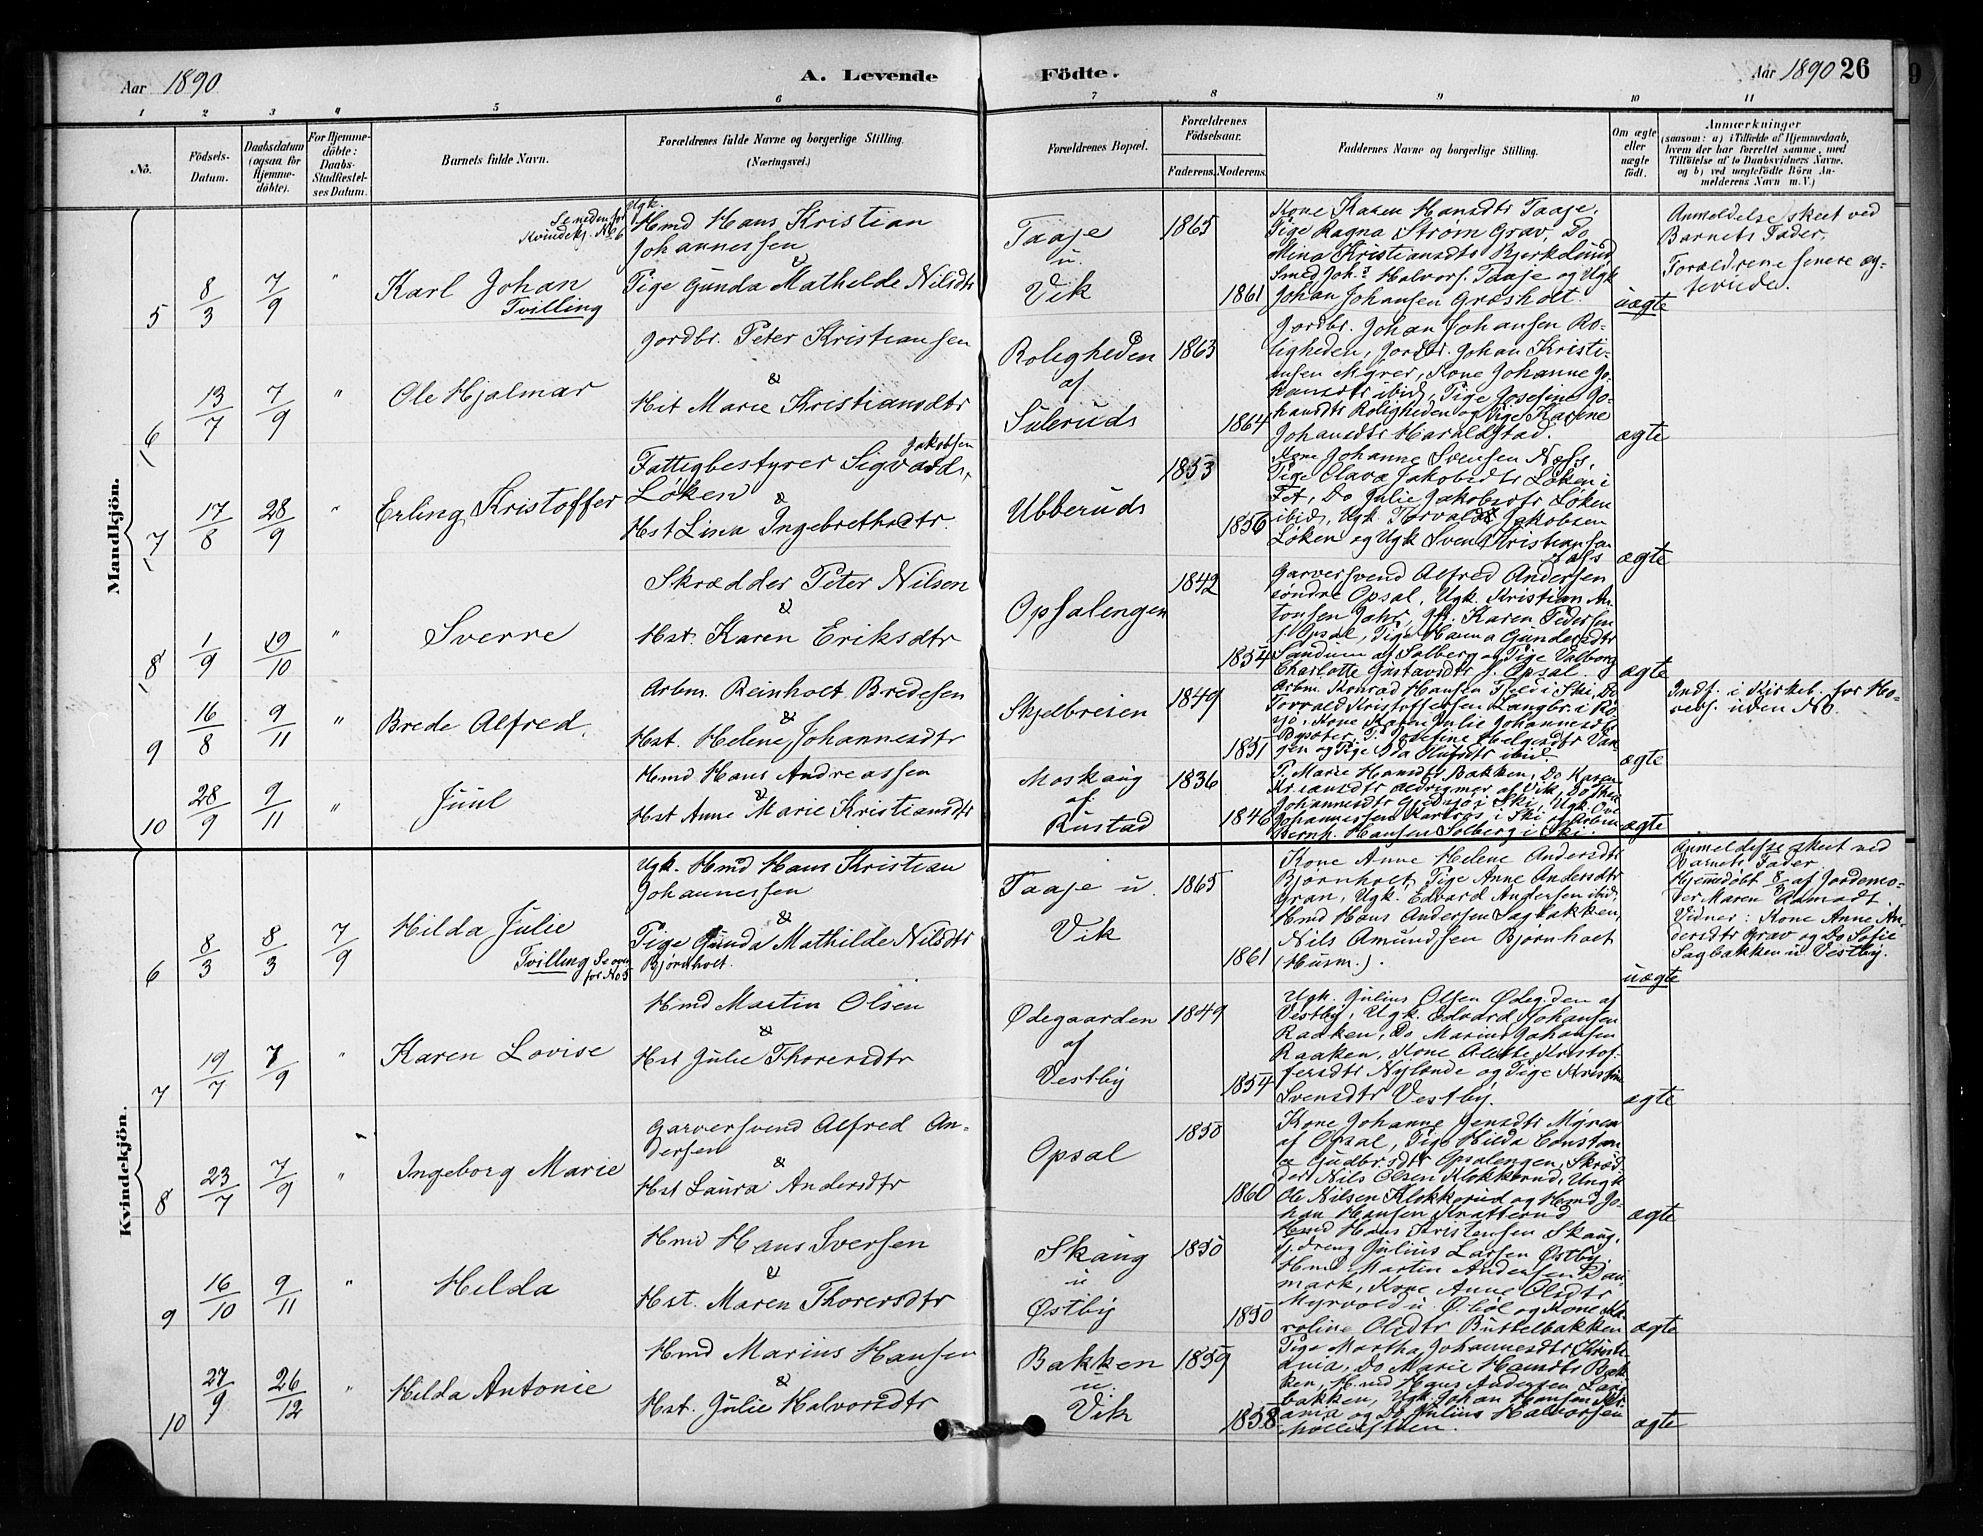 Aar 1890
A. Levende
Födte.
Aar 1890 26
1 2 3 4 5 6 7 8 9 10 11
No.
Födsels-
Datum.
Daabsdatum
(ogsaa for
Hjemme-
döbte).
For Hjemme-
döbte:
Daabs-
Stadfæstel-
ses Datum.
Barnets fulde Navn.
Forældrenes fulde Navne og borgerlige Stilling.
(Næringsvei.)
Forældrenes Bopæl.
Forældrenes
Födselsaar.
Faderens. Moderens.
Faddernes Navne og borgerlige Stilling.
Om ægte
eller
uægte
födt.
Anmærkninger
(saasom: a) i Tilfælde af Hjemmedaab,
hvem der har forrettet samme, med
Tilföielse af to Daabsvidners Navne,
og b) ved uægtefödte Börn An-
melderens Navn m. V.)
Mandkjön.
5
8/3
7/9
"
Se neden for
Kvindekj. No 6
Karl Johan
Tvilling
Ugk.
Hmd Hans Kristian
Johannessen
&
Pige Gunda Mathilde Nilsdtr
Taaje
u.
Vik
1865
1861
Kone Karen Hansdtr Taaje,
Pige Ragna Strøm Grav, Do
Mina Kristiansdtr Bjerkelund,
Smed Joh.s Halvors. Taaje og Ugk
Johan Johansen Græsholt.
uægte
Anmeldelse skeet ved
Barnets Fader,
Forældrene senere æg-
teviede.
6
13/7
7/9
"
Ole Hjalmar
Jordbr. Peter Kristiansen
&
Hst Marie Kristiansdtr
Roligheden
af
Suleruds
1863
1864
Jordbr. Johan Johansen Ro-
ligheden, Jordbr. Johan Kristi-
ansen Myrer, Kone Johanne Jo-
hansdtr ibid, Pige Josefine Jo-
hansdtr Roligheden og Pige Karene
Johansdtr Haraldstad.
ægte
7
17/8
28/9
"
Erling Kristoffer
Fattigbestyrer Sigvard Jakobsen
Løken
&
Hst Lina Ingebrethsdtr.
Ubberuds
1853
1856
Kone Johanne Svensen Næss,
Pige Olava Jakobsdtr Løken i
Fet, Do Julie Jakobsdtr Løken
ibid, Ugk Torvald Jakobsen
Løken og Ugk Sven Kristiansen
ægte
8
1/9
19/10
"
Sverre
Skrædder Peter Nilsen
&
Hst. Karen Eriksdtr
Opsalengen
1842
1854
Garversvend Alfred Andersen
søndre Opsal, Ugk. Kristian An-
tonsen Jahr, Karen Pedersen
Opsal, Pige Hanna Gundersdtr
Sandum af Solberg og Pige Valborg
Charlotte Gustavsdtr Opsal.
ægte
9
16/8
9/11
"
Brede Alfred.
Arbm. Reinholt Bredesen
&
Hst. Helene Johannesdtr
Skjelbreien
1849
1851
Arbm. Konrad Hansen Fjeld i Ski, Do
Torvald Kristoffersen Langbr. i
Kone Karen Julie Johannesdtr
Josefine Helgesdtr Van-
gen og Pige ibid.
ægte
Indf. i Kirkeb. for Ho-
veds. uden No.
10
28/9
9/11
"
Juul
Hmd Hans Andreassen
&
Hst Anne Marie Kristiansdtr
Moskaug
af
Rustad
1836
1846
P. Marie Hansdtr Bakken, Do Karen
af Vik, Do
Johannesdtr i Ski, Ugk. Ove
Johannessen i Ski og Arbm
Bernh. Hansen Solberg i Ski.
ægte
Kvindekjön.
6
8/3
8/3
7/9
Hilda Julie
Tvilling Se oven
for No 5
Ugk. Hmd Hans Kristian
Johannessen
&
Pige Gunda Mathilde Nilsdtr
Bjørnholt.
Taaje u.
Vik
1865
1861
Kone Anne Helene Andersdtr
Bjørnholt, Pige Anne Andersdtr
Gran, Ugk. Edvard Andersen ibid,
Hmd Hans Andersen Sagbakken,
Nils Amundsen Bjørnholt
(Husm.).
uægte
Anmeldelse skeet ved
Barnets Fader.
Hjemmedøbt 8/3 af Jordemo-
der Maren Aamodt.
Vidner: Kone Anne An-
dersdtr Grav og Do Sofie
Sagbakken u. Vestby.
7
19/7
7/9
"
Karen Lovise
Hmd Martin Olsen
&
Hst Julie Thorersdtr
Ødegaarden
af
Vestby
1849
1854
Ugk. Julius Olsen Ødeg.den af
Vestby, Ugk. Edvard Johansen
Raaken, Do Marius Johansen
Raaken, Kone Alette Kristof-
fersdtr Nylænde og Pige Kristine
Svensdtr Vestby.
ægte
8
23/7
7/9
"
Ingeborg Marie
Garversvend Alfred An-
dersen
&
Hst Laura Andersdtr
Opsal
1850
1860
Kone Johanne Jensdtr Myren
af Opsal, Pige Hilda Constan-
ce Gudbr.sdtr Opsalengen, Skræd-
der Nils Olsen Klokkerud, Ungk
Ole Nilsen Klokkerud og Hmd Jo-
han Hansen Krafterud
ægte
9
16/10
9/11
"
Hilda
Hmd Hans Iversen
&
Hst. Maren Thorersdtr
Skaug
u
Østby
1850
1850
Hmd Hans Kristensen Skaug,
Tj.dreng Julius Larsen Østby,
Hmd Martin Andersen Dan-
mark, Kone Anne Olsdtr
Myrvold u. Øibøl og Kone Ka-
roline Olsdtr Buttelbakken
ægte
10
27/9
26/12
"
Hilda Antonie
Hmd Marius Hansen
&
Hst. Julie Halvorsdtr
Bakken
u
Vik
1859
1858
Pige Martha Johannesdtr Kristi-
ania, Do Marie Hansdtr Bak-
ken, Hmd Hans Andersen Sag-
bakken, Ugk. Johan Hansen Kri-
ania og Do Julius Halvorsen
Møllerstuen.
ægte